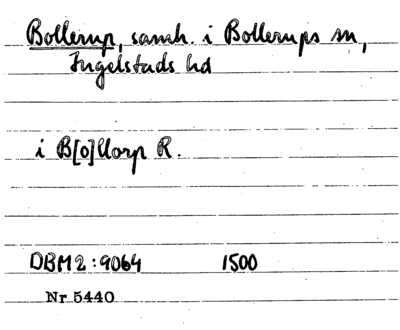 Bollerup, samh. i Bollerups sn,
Ingelstads hd
i B[o]llorp R.
DBM2:9064 1500
Nr 5440